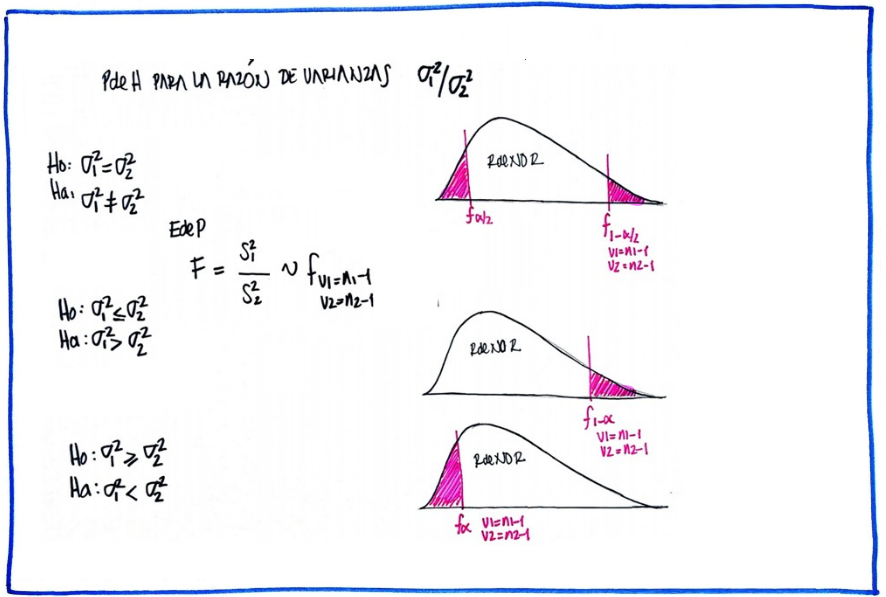 PdeH PARA LA RAZÓN DE VARIANZAS σ₁²/σ₂²
Ho: σ₁²=σ₂²
Ha: σ₁²≠σ₂²
RdeNO R
fα/2
f1-α/2
V1=n1-1
V2=n2-1
EdeP
F = S₁²/S₂² ~ f V1=n1-1
V2=n2-1
Ho: σ₁²≤σ₂²
Ha: σ₁²>σ₂²
RdeNO R
f1-α
V1=n1-1
V2=n2-1
Ho: σ₁²⩾σ₂²
Ha: σ₁²<σ₂²
RdeNO R
fα V1=n1-1
V2=n2-1